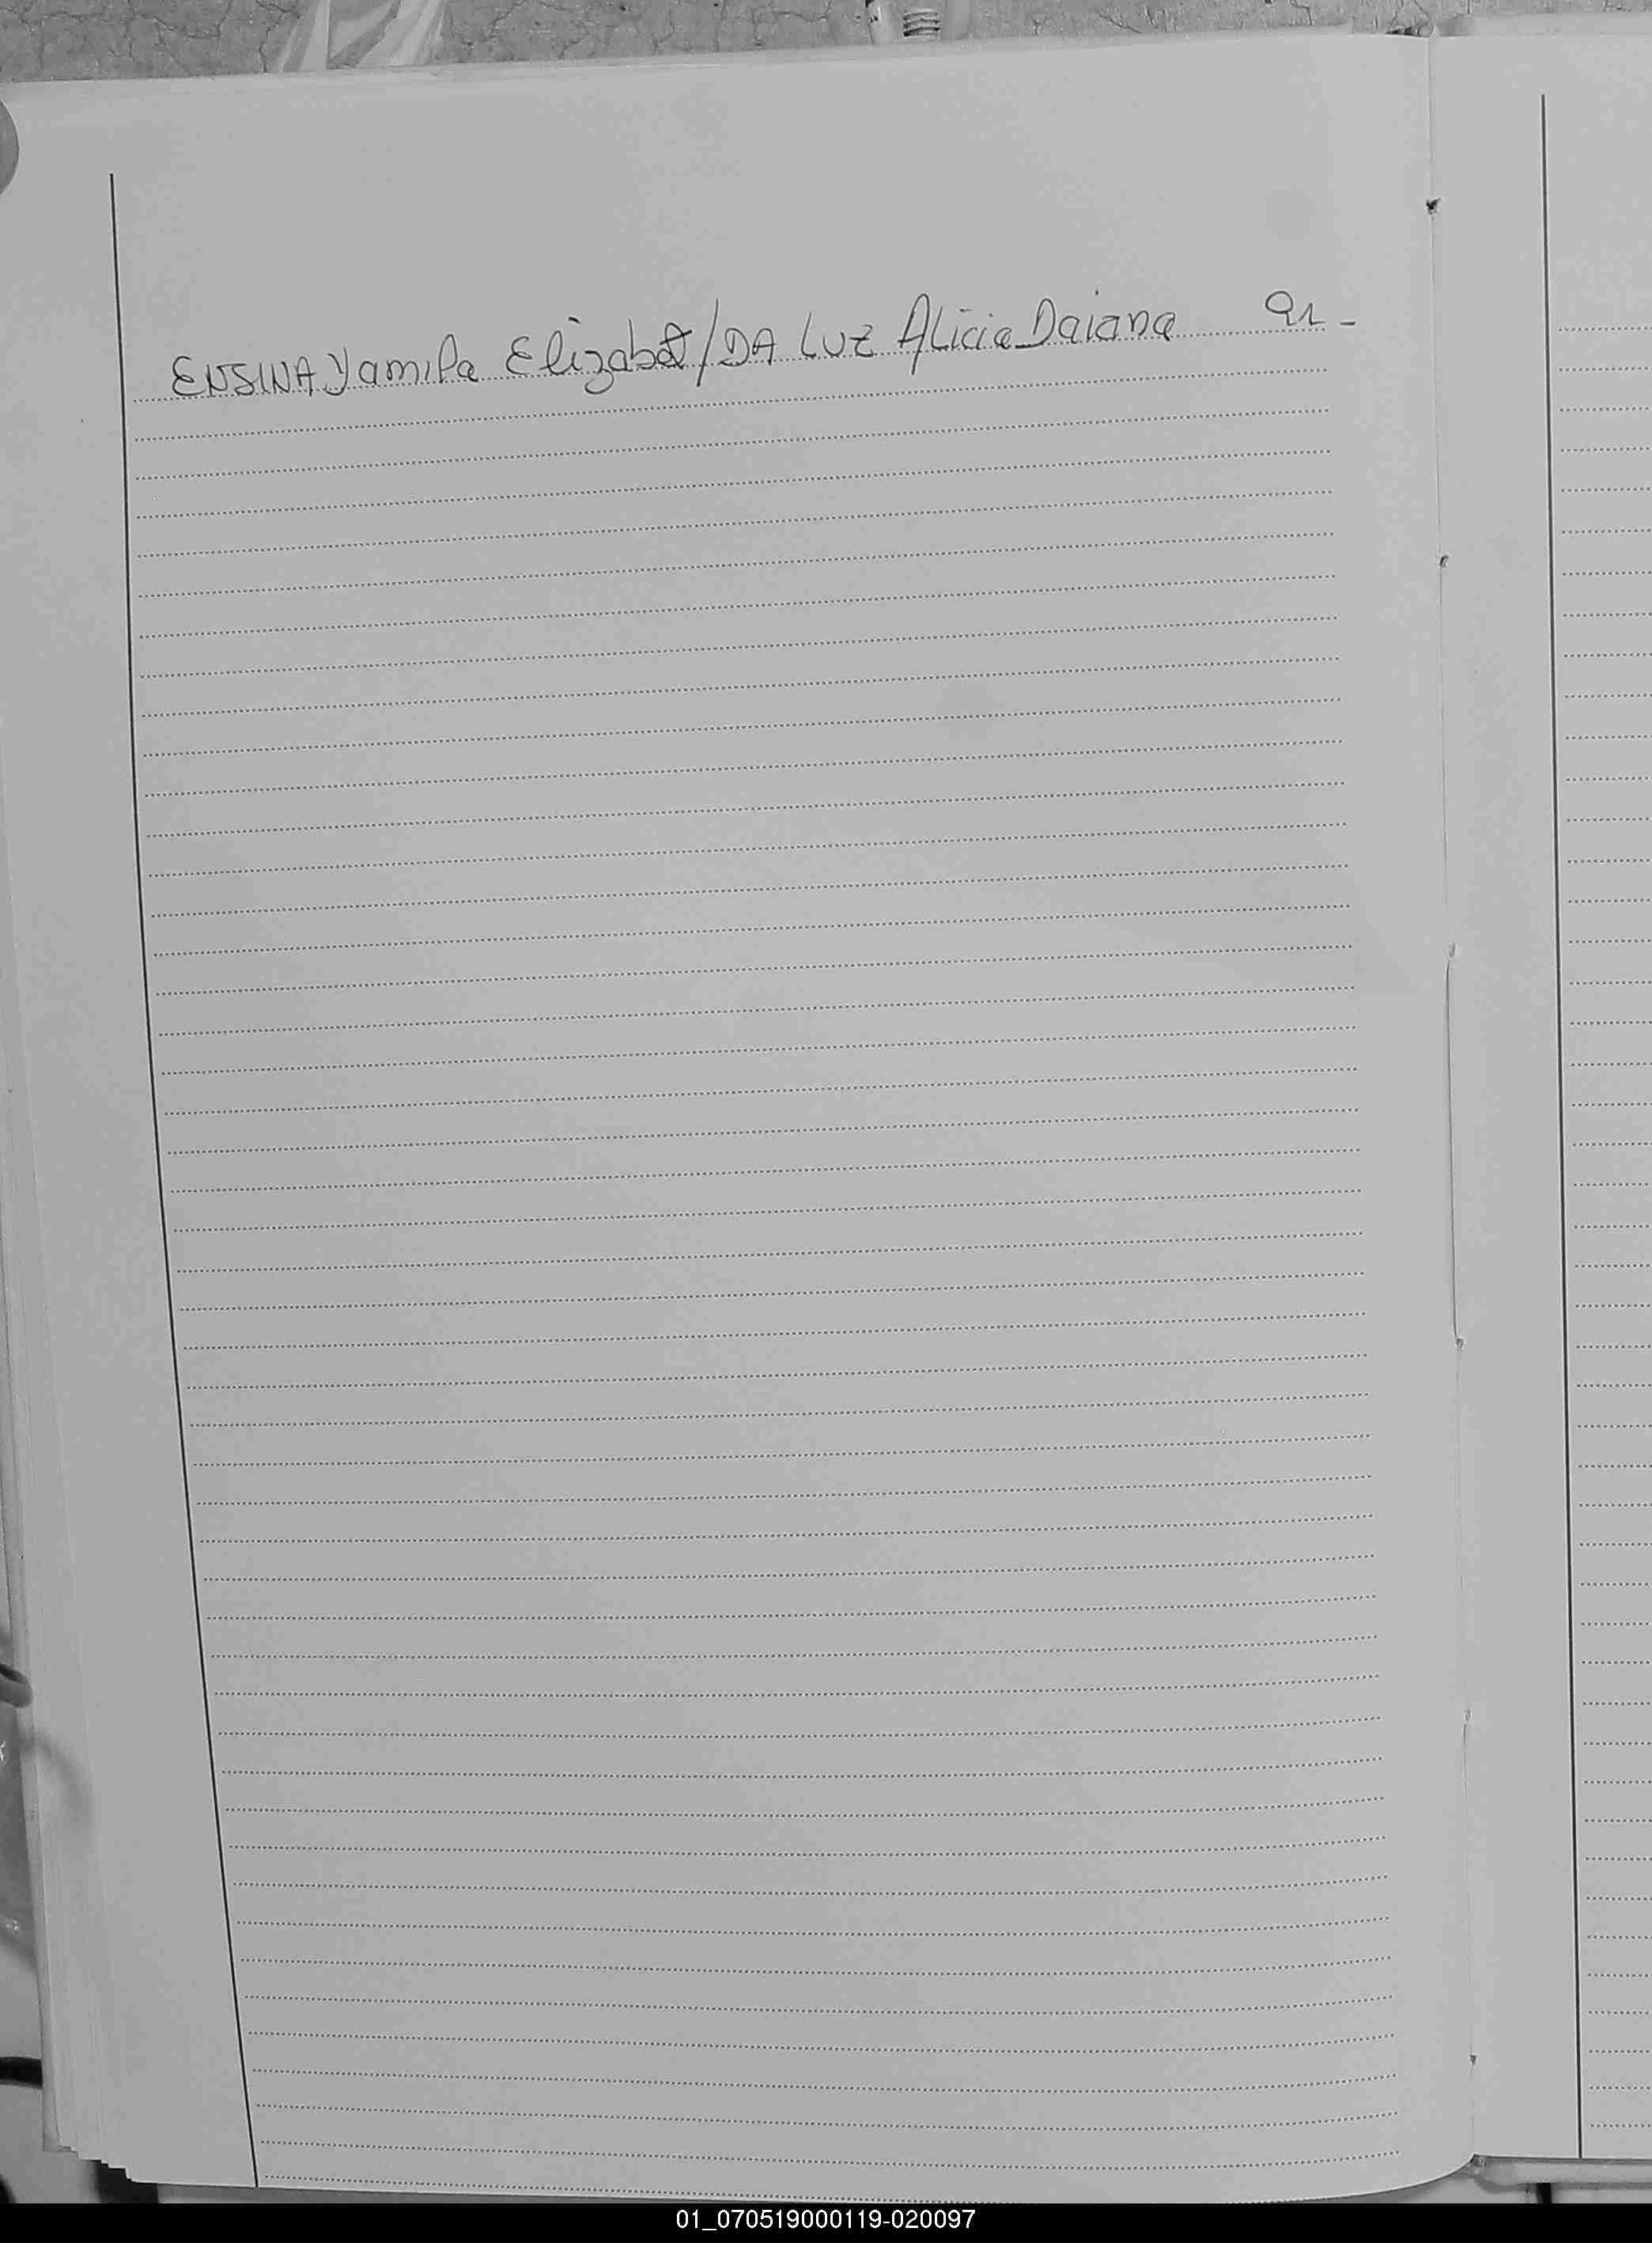 ENSINA Yamila Elizabet/DA LUZ Alicia Daiana 91-
01_070519000119-020097